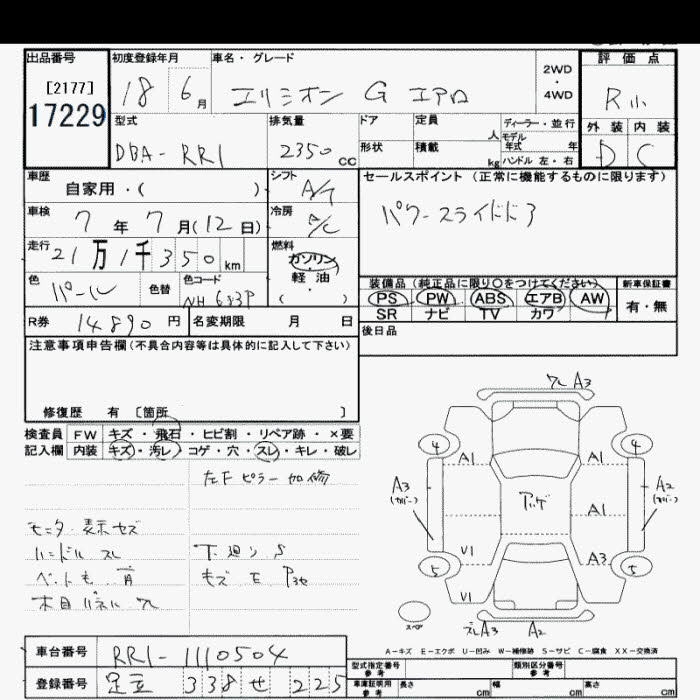 出品番号 初度登録年月 車名・グレード 評価点
[2177] 18 6月 エリシオン G エアロ 2WD・4WD R小
17229
型式 排気量 ドア 定員 人 ディーラー・並行 外装 内装
DBA-RR1 2350 CC 形状 積載 kg モデル年式 年 D C
ハンドル 左・右
車歴 自家用・( ) シフト A/T セールスポイント (正常に機能するものに限ります)
車検 7年 7月 (12日) 冷房 A/C パワースライドド3
走行 21万1千350km 燃料 ガソリン・軽油・( )
色 パール 色替 色コード NH683P 装備品 (純正品に限り〇をつけてください) 新車保証書
PS PW ABS エアB AW 有・無
SR ナビ TV カワ
R券 14890円 名変期限 月 日 後日品
注意事項申告欄(不具合内容等は具体的に記入して下さい)
修復歴 有 〔箇所 〕
検査員 FW キズ・飛石・ヒビ割・リペア跡・×要
記入欄 内装 キズ・汚レ・コゲ・穴・スレ・キレ・破レ
左F ピラー 加修
モニター表示セズ
ハンドル スレ 下廻り S
キズ E P3セ
ワレ A3
4 4
A1 A1
A3 (カバー) A2 (カバー)
A1
V1 A3
5 5
V1
スペア
ズレA3 A2
A-キズ E-エクボ U-凹み W-補修跡 S-サビ C-腐食 XX-交換済
車台番号 RR1-1110504 型式指定番号 参考 類別区分番号 参考
登録番号 足立 338 せ 225 車庫証明用 参考 長さ cm 幅 cm 高さ cm